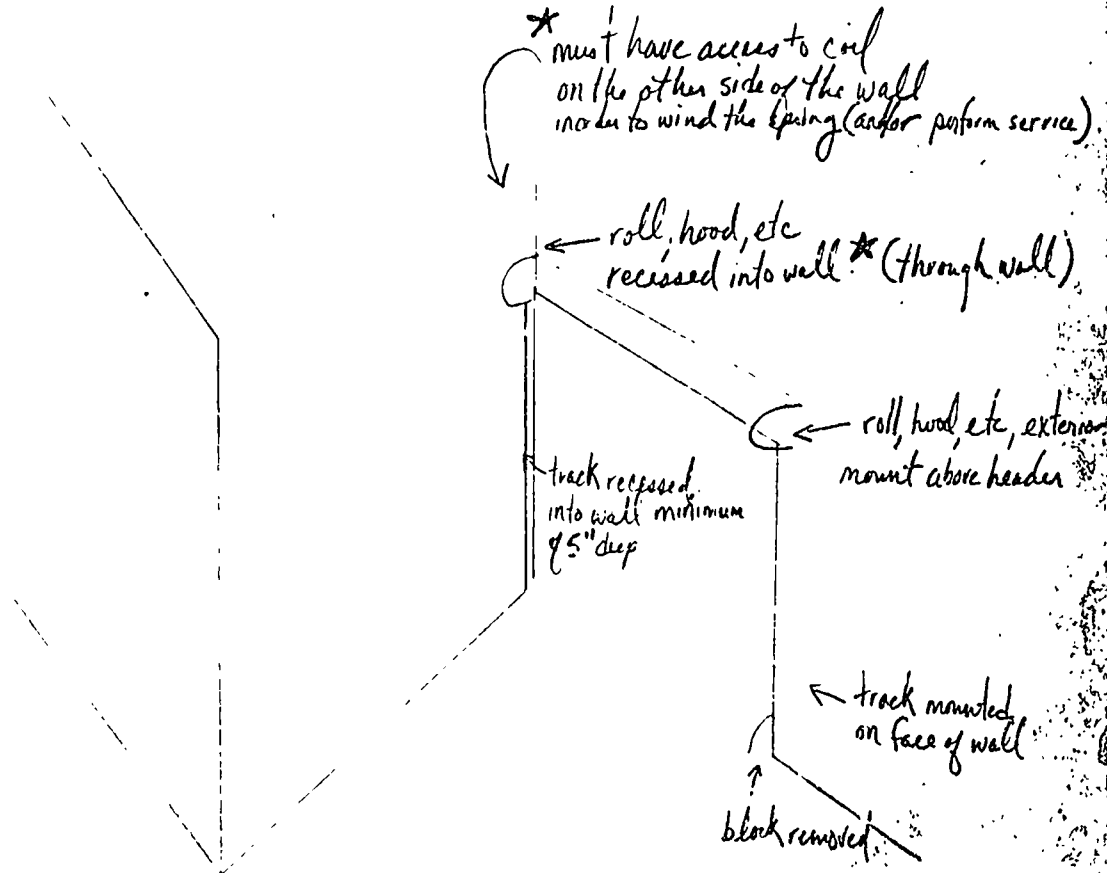 * must have access to coil
on the other side of the wall
in order to wind the spring (and/or perform service)
roll, hood, etc
recessed into wall * (through wall)
roll, hood, etc, exterior
mount above header
track recessed
into wall minimum
of 5" deep
track mounted
on face of wall
block removed